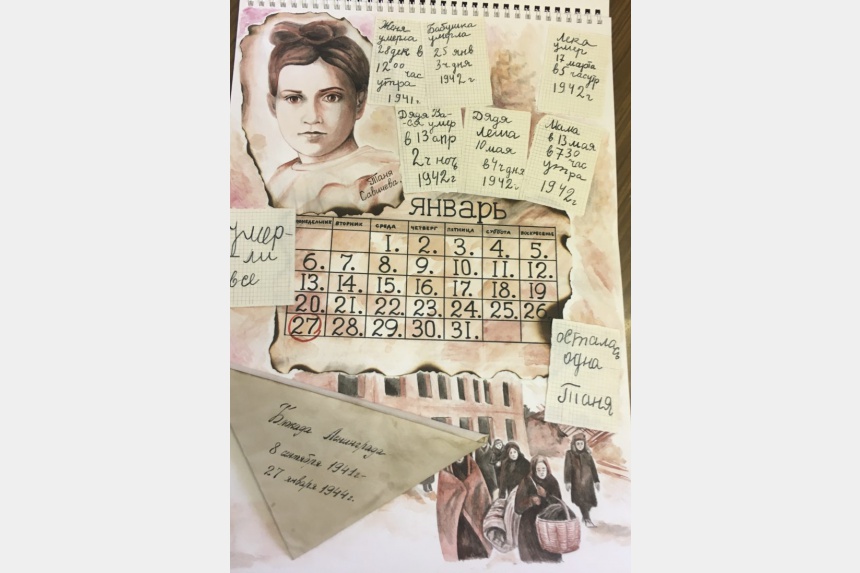 Женя
умерла
28 дек в
12 00 час
утра
1941 г
Бабушка
умерла
25 янв
3 ч дня
1942 г
Лека
умер
17 марта
в 5 час утр
1942 г
Дядя Ва-
ся умер
в 13 апр
2 ч ноч
1942 г
Дядя
Леша
10 мая
в 4 ч дня
1942 г
Мама
в 13 мая
в 7 30
час
утра
1942 г
Таня
Савичева
умер-
ли
все
ЯНВАРЬ
ПОНЕДЕЛЬНИК ВТОРНИК СРЕДА ЧЕТВЕРГ ПЯТНИЦА СУББОТА ВОСКРЕСЕНИЕ
1. 2. 3. 4. 5.
6. 7. 8. 9. 10. 11. 12.
13. 14. 15. 16. 17. 18. 19
20. 21. 22. 23. 24. 25. 26
27 28. 29. 30. 31.
осталась
одна
Таня
Блокада Ленинграда
8 сентября 1941 г-
27 января 1944 г.